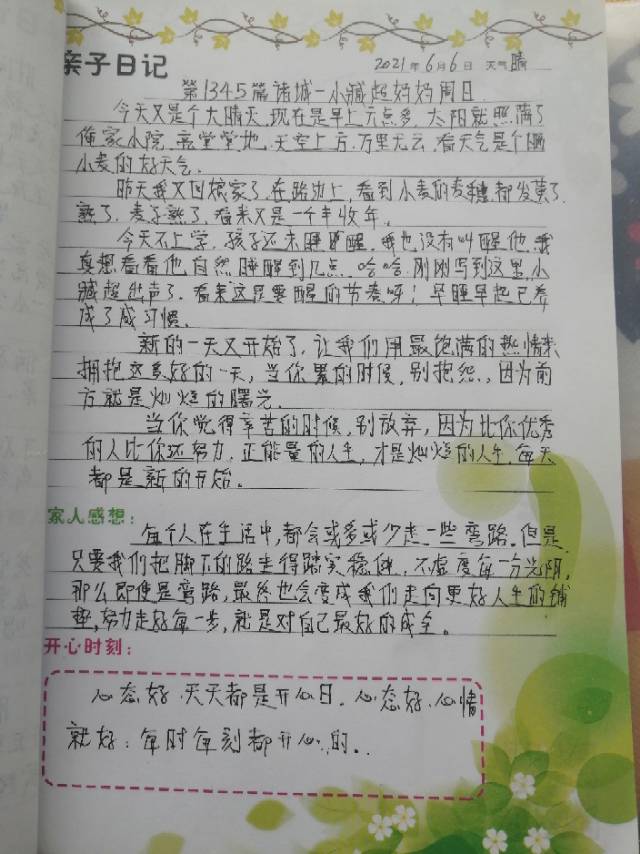 亲子日记
2021年6月6日 天气晴
第1345篇诸城一小臧超妈妈周日
今天又是个大晴天,现在是早上六点多,太阳就照满了
俺家小院,亮堂堂地,天空上方,万里无云,看天气是个晒
小麦的好天气。
昨天我又回娘家了,在路边上,看到小麦的麦穗都发黄了,
熟了,麦子熟了,看来又是一个丰收年。
今天不上学,孩子还未睡醒,我也没有叫醒他,我
真想看看他自然睡醒到几点,哈哈,刚刚写到这里,小
臧超出声了,看来这是要醒的节奏呀!早睡早起已养
成了成习惯。
新的一天又开始了,让我们用最饱满的热情来
拥抱这美好的一天,当你累的时候,别抱怨,因为前
方就是灿烂的曙光。
当你觉得辛苦的时候,别放弃,因为比你优秀
的人比你还努力,正能量的人生,才是灿烂的人生,每天
都是新的开始。
家人感想:
每个人在生活中,都会或多或少走一些弯路。但是
只要我们把脚下的路走得踏实稳健,不虚度每一分光阴,
那么即使是弯路,最终也会变成我们走向更好人生的铺
垫,努力走好每一步,就是对自己最好的成全。
开心时刻:
心态好,天天都是开心日。心态好,心情
就好:每时每刻都开心的。